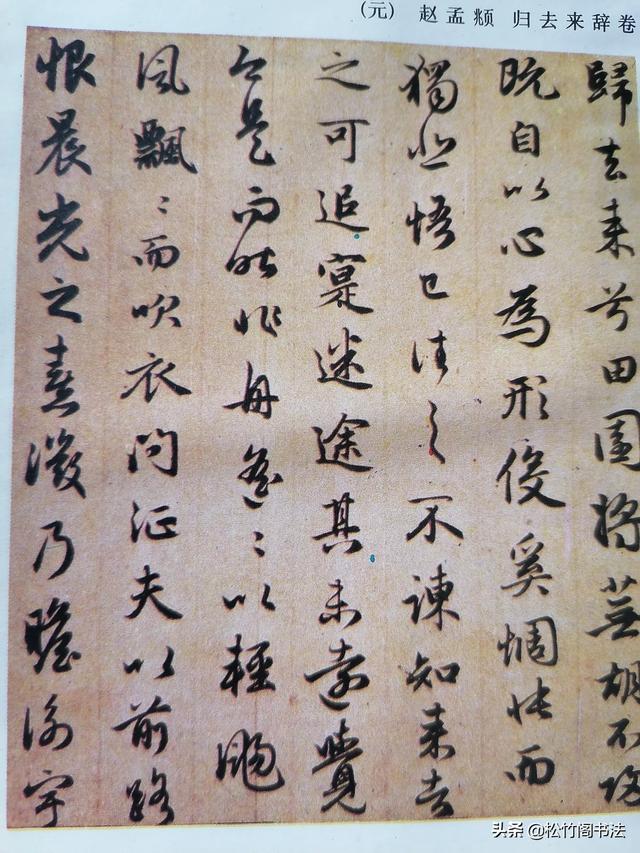 (元) 赵孟頫 归去来辞卷
歸去来兮田園将蕪胡不歸
既自以心為形役奚惆悵而
獨悲悟已往之不諫知来者
之可追寔迷途其未遠覺
今是而昨非舟遙〻以輕颺
風飄〻而吹衣問征夫以前路
恨晨光之熹微乃瞻衡宇
头条 @松竹阁书法